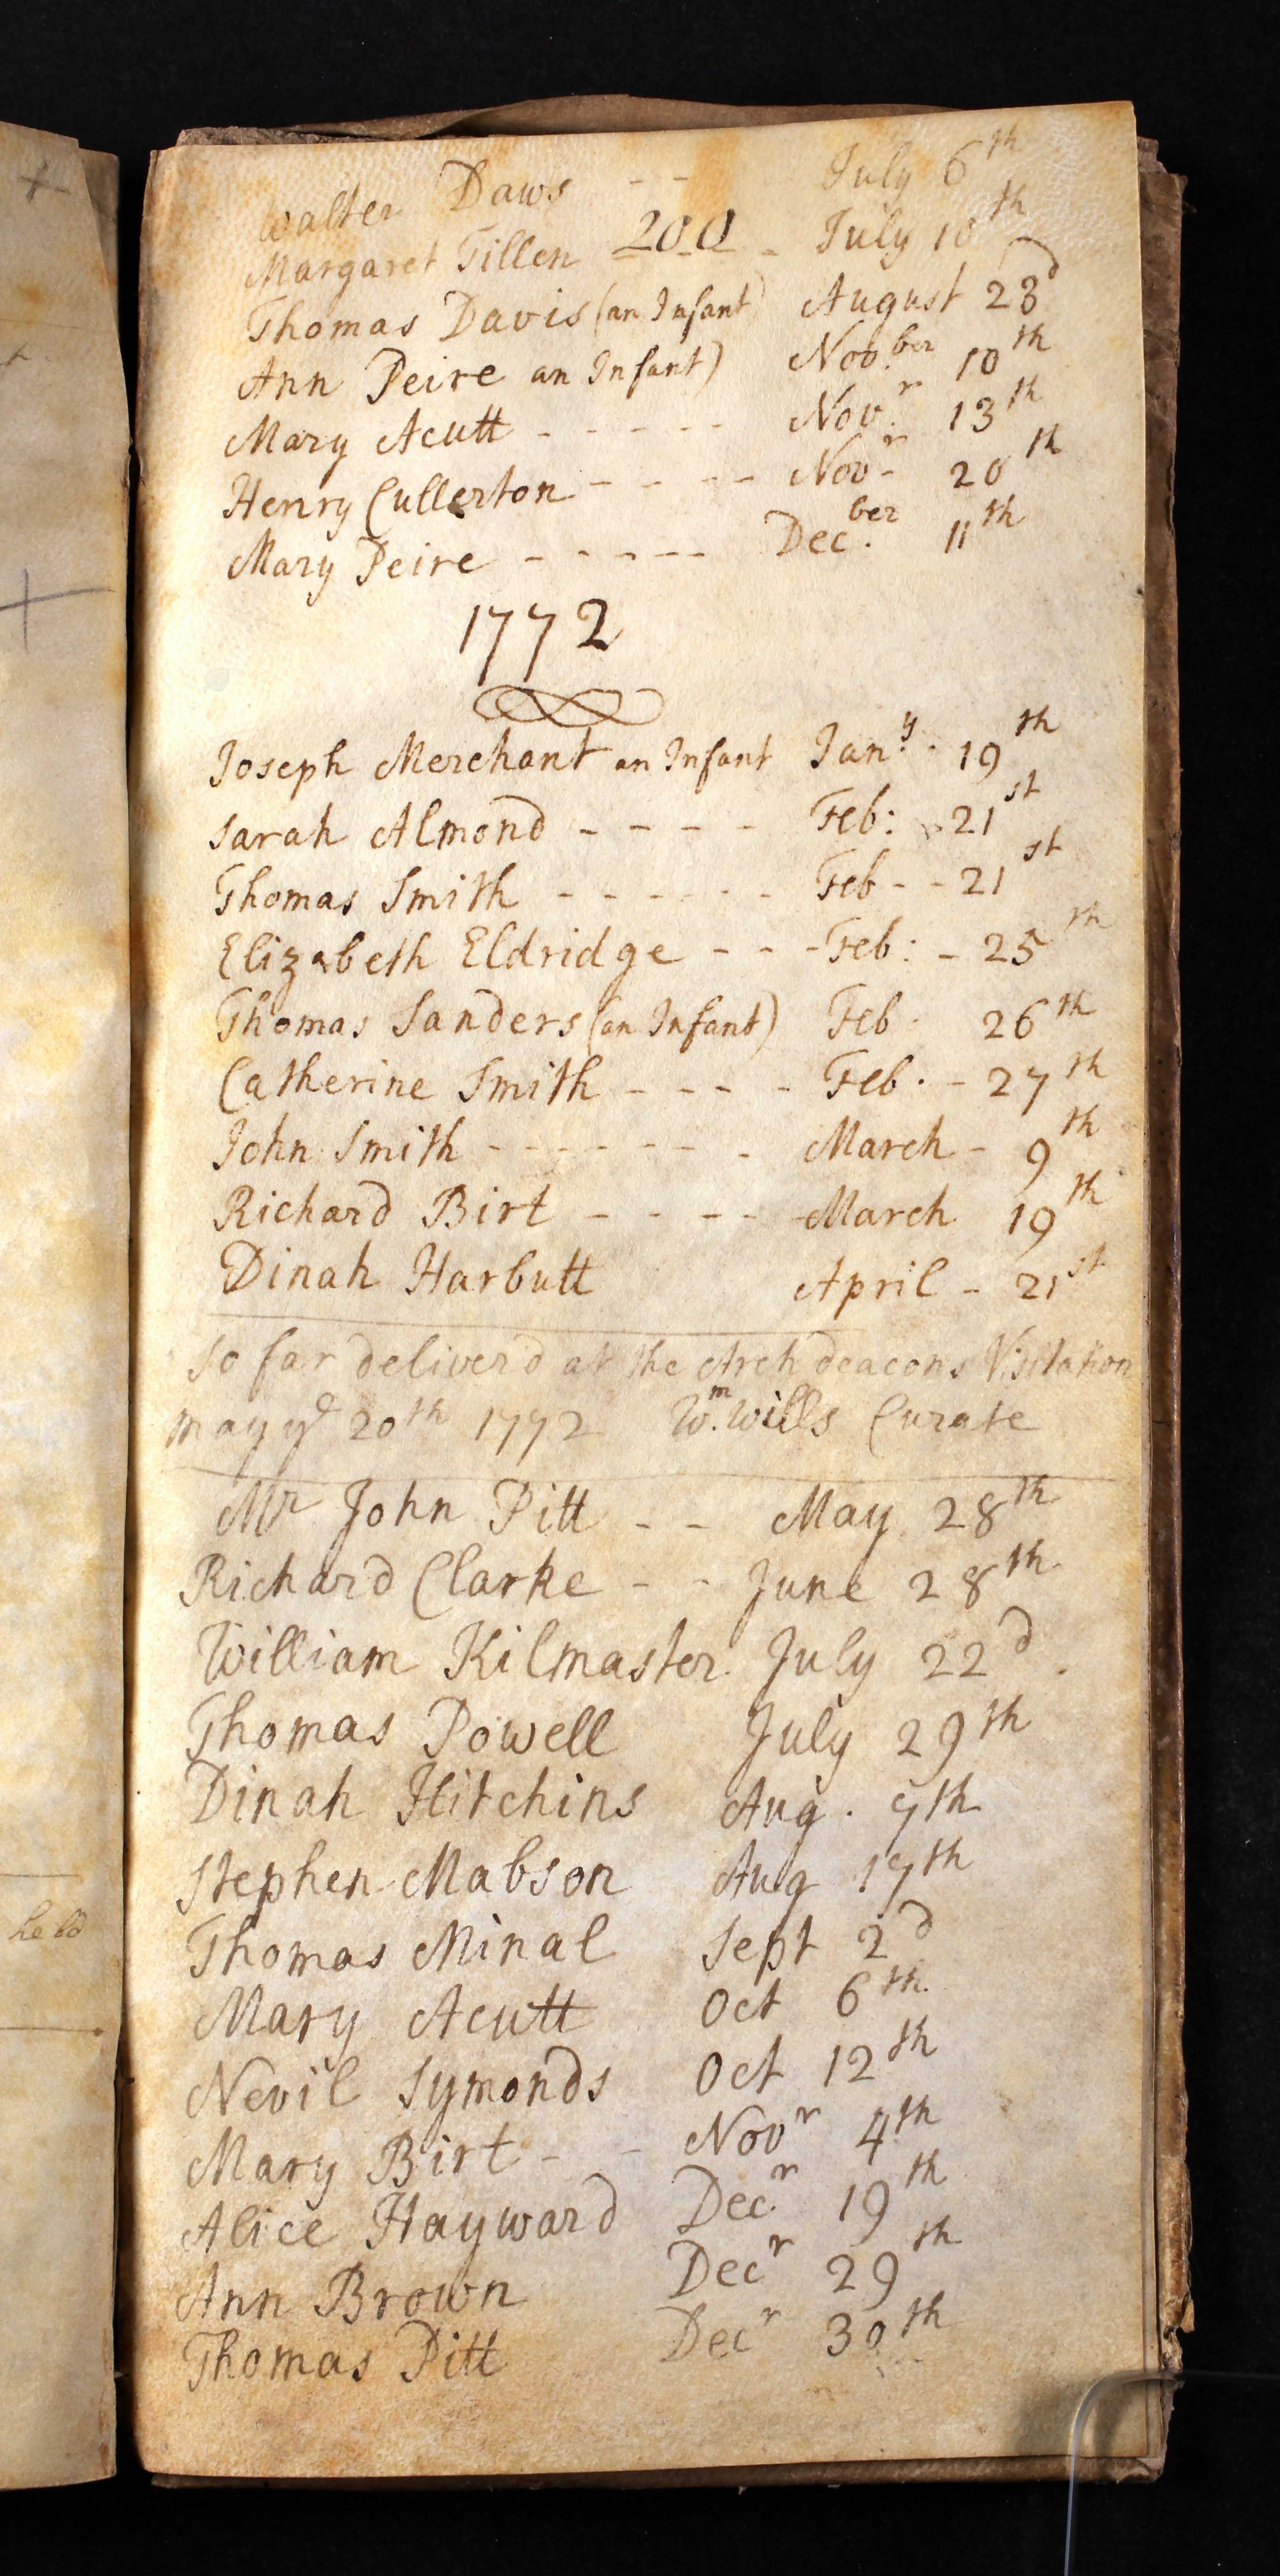 Walter Daws - - July 6th
Margaret Tillen 200 - July 10th
Thomas Davis (an Infant) August 23d
Ann Peire an Infant) Nov.ber 10th
Mary Acutt - - - - - Nov.r 13th
Henry Cullerton - - - - Novr - 20th
Mary Peire - - - - - Dec.ber 11th
1772
Joseph Merchant an Infant Jan.y. 19th
Sarah Almond - - - - Feb: 21st
Thomas Smith - - - - - - Feb - - 21st
Elizabeth Eldridge - - - Feb: - 25th
Thomas Sanders (an Infant) Feb. 26th
Catherine Smith - - - - Feb. - 27th
John Smith - - - - - - - March - 9th
Richard Birt - - - - - March 19th
Dinah Harbutt April - 21st
So far deliver'd at the Archdeacons Visitation
may ye 20th 1772 Wm. Wills Curate
Mr John Pitt - - May 28th
Richard Clarke - - June 28th
William Kilmaster. July 22d.
Thomas Powell July 29th
Dinah Hitchins Aug. 7th
Stephen Mabson Aug 17th
Thomas Minal Sept 2d
Mary Acutt Oct 6th.
Nevil Symonds Oct 12th
Mary Birt - - Novr 4th
Alice Hayward Dec.r 19th
Ann Brown Decr 29th
Thomas Pitt Decr 30th
held